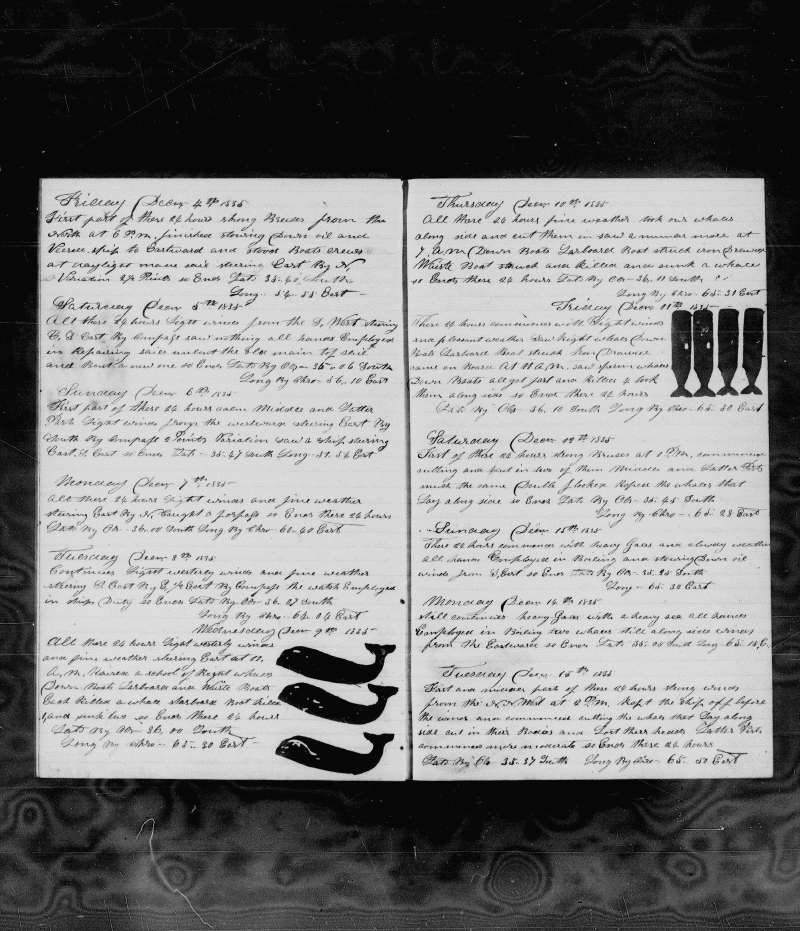 Friday (Decem 4th 1835
First part of these 24 hours strong Breeses from the
North at 6 P.M. finished stowing Down oil and
Veered ship to Eastward and stood Boats crews
at daylight made sail steering East By N
Variation 2½ Points so Ends Lat 35-40 South
Long - 54-55 East
Saturday (Decem 5th 1835
All these 24 hours Light winds from the S, West steering
E, S East By Compass saw nothing all hands Employed
in Repairing sails unbent the main top sail
and Bent a new one so Ends Lat By Obs - 36-06 South
Long By Chro - 56, 10 East
Sunday (Decem 6th 1835
First part of these 24 hours calm Middle and Latter
Part Light winds from the westward steering East By
South By Compass 2 Points Variation saw a ship steering
East, S East so Ends Lat - 35-47 South Long - 57-54 East
Monday (Decem 7th 1835
All these 24 hours Light winds and fine weather
steering East By N, Caught a porpass so Ends these 24 hours
Lat By Obs - 36-00 South Long By Chro - 60-40 East
Tuesday (Decem 8th 1835
Continues Light westerly winds and fine weather
steering S East By E, ½ East By Compass the watch Employed
in ships Duty so Ends Lat By Obs 36-07 South
Long By Chro - 64-04 East
Wednesday (Decem 9th 1835
All these 24 hours Light westerly winds
and fine weather steering East at 11,
A, M, Raised a school of Right whales
Down Boats Larboard and Waist Boats
Each Killed a whale Starboard Boat Killed
and sunk two so Ends these 24 hours
Lat By Obs - 36, 00 South
Long By Chro - 65-30 East -
Thursday (Decem 10th 1835
All these 24 hours fine weather took our whales
along side and cut them in saw a number more at
7, A.M (Down Boats Larboard Boat struck iron Drawed
Waist Boat struck and Killed and sunk a whale
so Ends these 24 hours Lat By Obs - 36-11 South
Long By Chro - 65-31 East
Friday (Decem 11th 1835
These 24 hours commences with Light winds
and pleasant weather saw Right whales Down
Boats Larboard Boat struck Iron Drawed
came on Board At 11 A.M. saw sperm whales
Down Boats all got fast and Killed 4 took
them along side so Ends these 24 hours
Lat By Obs - 36, 10 South Long By Chro - 65-30 East
Saturday (Decem 12th 1835
First of these 24 hours strong Breeses at 1 P.M, commenced
cutting and cut in two of them Middle and Latter Parts
much the same Double Reped the whales that
Lay along side so Ends Lat By Obs - 35-45 South
Long By Chro - 65-28 East
Sunday (Decem 13th 1835
These 24 hours commences with heavy Gales and cloudy weather
all hands Employed in Boiling and stowing Down oil
winds from S, East so Ends Lat By Obs - 35-25 South
Long - 65-30 East
Monday (Decem 14th 1835
still continues heavy Gales with a heavy sea all hands
Employed in Boiling two whales still along side winds
from the Eastward so Ends Lat 35-00 South Long - 65-15, E,
Tuesday (Decem 15th 1835
First and middle part of these 24 hours strong winds
from the N, N West at 2 P.M. kept the ship off before
the wind and commenced cutting the whales that Lay along
side cut in their Bodies and Lost thier heads Latter Part
commences more moderate so Ends these 24 hours
Lat By Obs - 35-37 South Long By Chro - 65-50 East